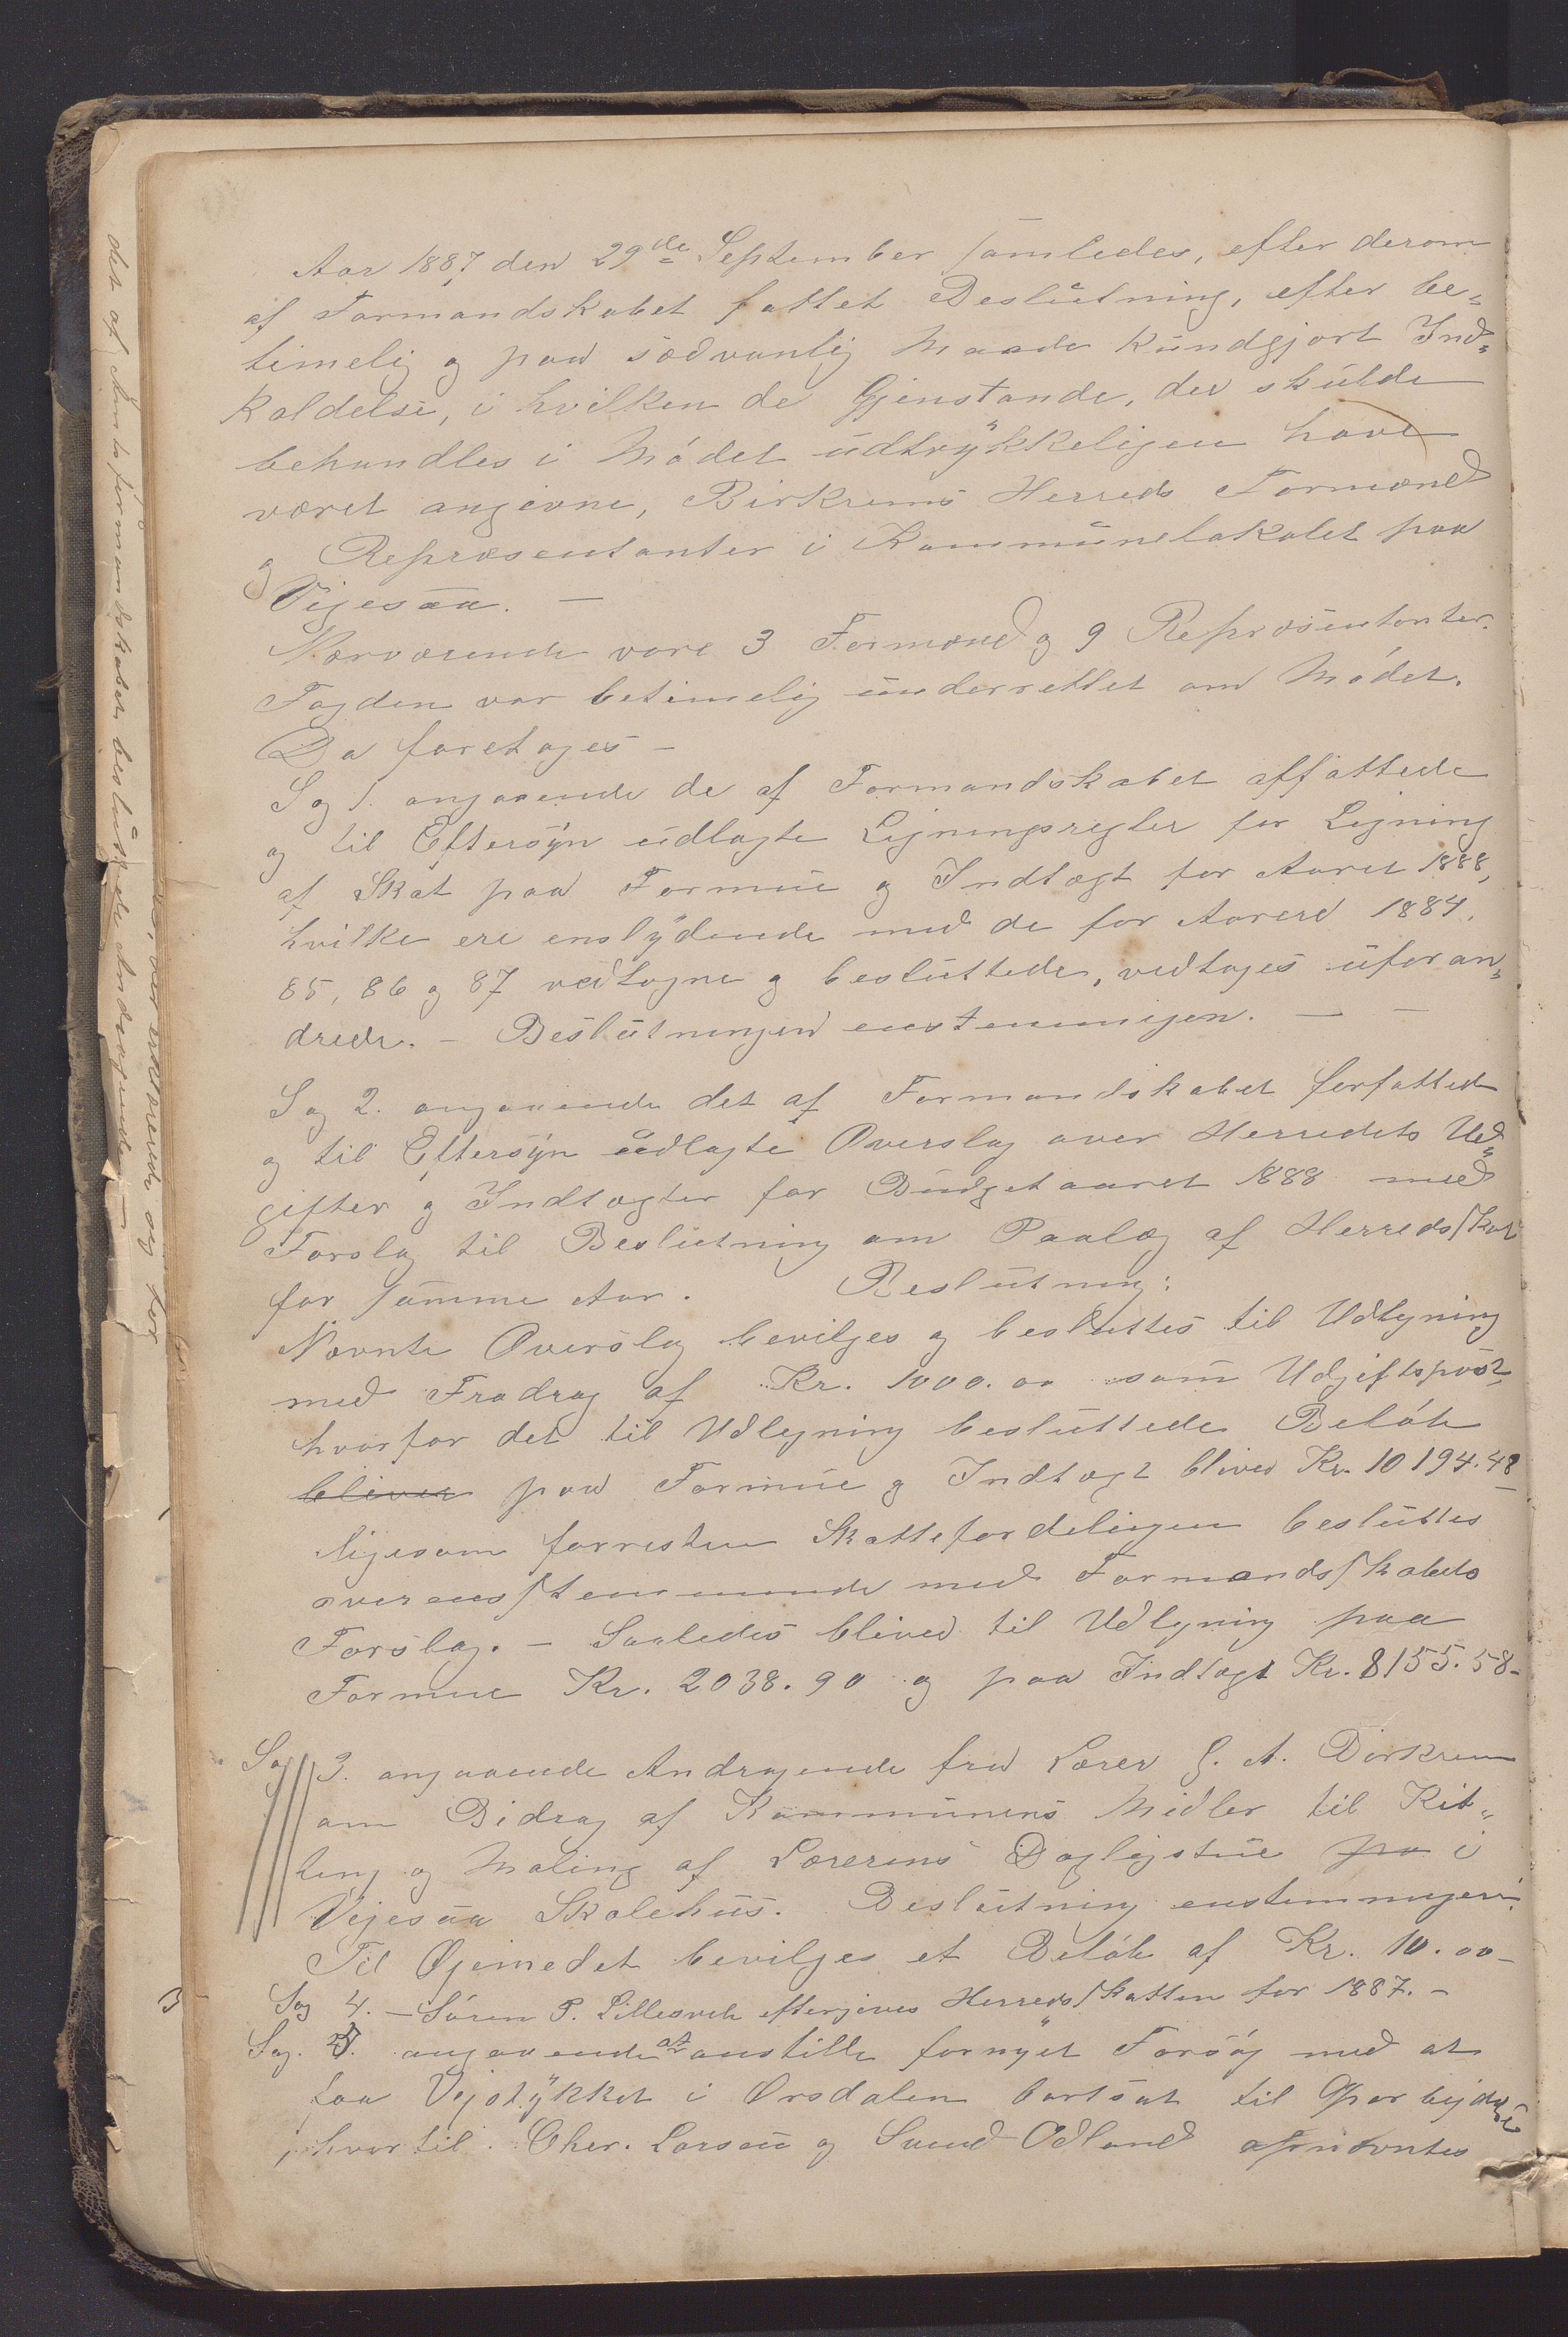 Aar 1887 den 29de September samledes, efter derom
af Formandskabet fattet Beslutning, efter be-
timelig og paa sædvanlig Maade kundgjort Ind-
kaldelse, i hvilken de Gjenstande, der skulde
behandles i Mødet udtrykkeligen have
været angivne, Birkrems Herreds Formænd
og Repræsentanter i Kommunelokalet paa
Vigesaa. —
Nærværende vare 3 Formænd og 9 Repræsentanter.
Fogden var betimelig underrettet om Mødet.
Da foretoges –
Sag 1. angaaende de af Formandskabet affattede
og til Eftersyn udlagte Ligningsregler for Ligning
af Skat paa Formue og Indtægt for Aaret 1888,
hvilke ere enslydende med de for Aarene 1884,
85, 86 og 87 vedtagne og besluttede, vedtages uforan-
drede. – Beslutningen enstemmigen. — –
Sag 2. angaaende det af Formandskabet forfattede
og til Eftersyn udlagte Overslag over Herredets Ud-
gifter og Indtægter for Budgetaaret 1888 med
Forslag til Beslutning om Paalæg af Herredsskat
for samme Aar. Beslutning:
Nævnte Overslag bevilges og besluttes til Udligning
med Fradrag af Kr. 1000.00 som Udgiftspost,
hvorfor det til Udligning besluttede Beløb
bliver paa Formue og Indtægt bliver Kr. 10194.48
ligesom forresten Skattefordelingen besluttes
overensstemmende med Formandskabets
Forslag. – Saaledes bliver til Udligning paa
Formue Kr. 2038.90 og paa Indtægt Kr. 8155.58-
Sag 3. angaaende Andragende fra Lærer G. A. Birkrem
om Bidrag af Kommunens Midler til Kit-
ting og Maling af Lærerens Dagligstue paa i
Vigesaa Skolehus. Beslutning enstemmigen:
Til Øiemedet bevilges et Beløb af Kr. 10.00-
Sag 4. – Søren P. Lillesvele eftergives Herredsskatten for 1887. –
Sag. 5. angaaende at anstille fornyet Forsøg med at
faa Vejstykket i Ørsdalen bortsat til Oparbejdelse
, hvortil Chr. Larsen og Svend Ødland opnævntes
det af Amtsformandskabet besluttede Andragende –
, over erklærede og for
3